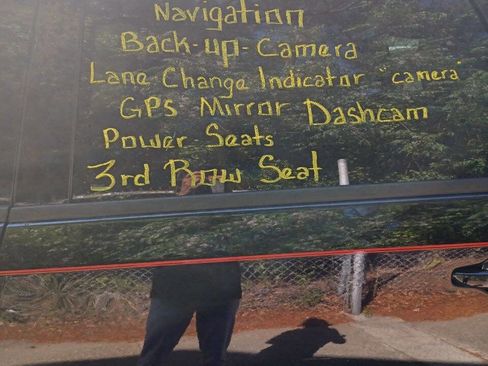 Navigation
Back-up-Camera
Lane Change Indicator "camera"
GPS Mirror Dashcam
Power Seats
3rd Row Seat